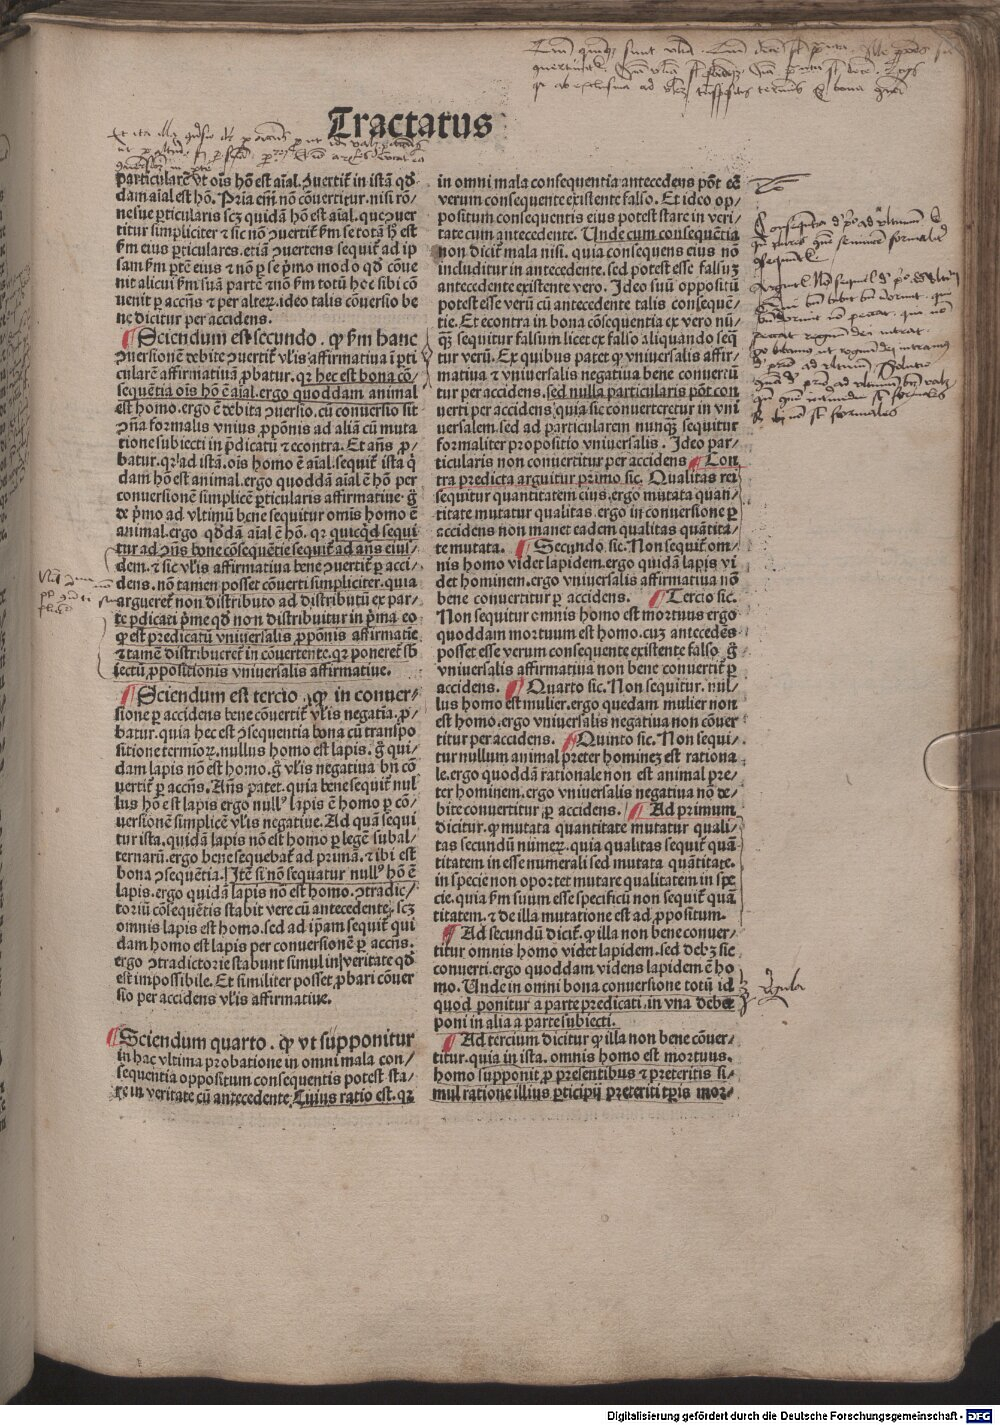 Tractatus
particularē vt oīs hō est aīal. ꝯuertit̄ in istā qđ
dam aīal est hō. Pria em̄ nō cōuertitur. nisi rō
ne sue ꝑticularis scꝫ quidā hō est aīal. que ꝯuer
titur simpliciter ⁊ sic nō ꝯuertit̄ ẜm se totā ꝑ est
ẜm eius ꝑticulares. etiā ꝯuertens sequit̄ ad ip
sam ẜm ptē eius ⁊ nō ꝑ se ṗmo modo qđ cōue
nit alicui ẜm suā partē ⁊ nō ẜm totū hoc sibi cō
uenit ꝑ accn̄s ⁊ per alteꝝ. ideo talis cōuersio be
ne dicitur per accidens.
¶ Sciendum est secundo. ꝙ ẜm hanc
ꝯuersionē debite ꝯuertit̄ vl̄is affirmatiua ī ꝑti
cularē affirmatiuā ꝓbatur. qꝛ hec est bona cō⸗
sequētia oīs hō ē aīal. ergo quoddam animal
est homo. ergo ē debita ꝯuersio. cū conuersio sit
ꝯn̄a formalis vnius ꝓpōnis ad aliā cū muta
tione subiecti in p̄dicatū ⁊ econtra. Et an̄s ꝓ⸗
batur. qꝛ ad istā. oīs homo ē aīal. sequit̄ ista q̇
dam hō est animal. ergo quoddā aīal ē hō per
conuersionē simplicē ꝑticularis affirmatiue. ḡ
de ṗmo ad vltimū bene sequitur omīs homo ē
animal. ergo qđdā aīal ē hō. qꝛ quicqđ sequi
tur ad ꝯn̄s bone cōsequētie sequit̄ ad an̄s eius⸗
dem. ⁊ sic vl̄is affirmatiua bene ꝯuertit̄ ꝑ acci⸗
dens. nō tamen posset cōuerti simpliciter. quia
argueret̄ non distributo ad distributū ex par⸗
te p̄dicati p̄me qđ non distribuitur in p̄ma eo
ꝙ est p̄dicatū vniuersalis ꝓpōnis affirmatie
⁊ tamē distribueret̄ in cōuertente. qꝛ poneret̄ sb̄
iectū ꝓpositionis vniuersalis affirmatiue.
¶ Sciendum est tercio. ꝙ in conuer⸗
sione ꝑ accidens bene cōuertit̄ vl̄is negatīa. ꝓ⸗
batur. quia hec est ꝯsequentia bona cū transpo
sitione termioꝝ. nullus homo est lapis. ḡ qui⸗
dam lapis nō est homo. ḡ vl̄is negatiua bn̄ cō
uertit̄ ꝑ accn̄s. An̄s patet. quia bene sequit̄ nul
lus hō est lapis ergo nullꝰ lapis ē homo ꝑ cō⸗
uersionē simplicē vl̄is negatiue. Ad quā sequi
tur ista. quidā lapis nō est homo ꝑ legē subal⸗
ternarū. ergo bene sequebat̄ ad primā. ⁊ ibi est
bona ꝯsequētia. Itē si nō sequatur nullꝰ hō ē
lapis. ergo quidā lapis nō est homo. ꝯtradic⸗
toriū cōsequētis stabit vere cū antecedente. scꝫ
omnis lapis est homo. sed ad ip̄am sequit̄ qui
dam homo est lapis per conuersionē ꝑ accn̄s.
ergo ꝯtradictorie stabunt simul in veritate qđ
est impossibile. Et similiter posset ꝓbari cōuer
sio per accidens vl̄is affirmatiue.
¶ Sciendum quarto. ꝙ vt supponitur
in hac vltima probatione in omni mala con⸗
sequentia oppositum consequentis potest sta⸗
re in veritate cū antecedente. Cuius ratio est. qꝛ
in omni mala consequentia antecedens pōt eē
verum consequente existente falso. Et ideo op⸗
positum consequentis eius potest stare in veri⸗
tate cum antecedente. Unde cum consequētia
non dicit̄ mala nisi. quia consequens eius nō
includitur in antecedente. sed potest esse falsuꝫ
antecedente existente vero. Ideo suū oppositū
potest esse verū cū antecedente talis consequē⸗
tie. Et econtra in bona cōsequentia ex vero nū⸗
qꝫ sequitur falsum licet ex falso aliquando seq̄
tur verū. Ex quibus patet ꝙ vniuersalis affir⸗
matiua ⁊ vniuersalis negatiua bene conuertū
tur per accidens. sed nulla particularis pōt con
uerti per accidens quia sic conuerteretur in vni
uersalem. sed ad particularem nunqꝫ sequitur
formaliter propositio vniuersalis. Ideo par⸗
ticularis non conuertitur per accidens ¶ Con
tra predicta arguitur primo sic. Qualitas rei
sequitur quantitatem eius. ergo mutata quan⸗
titate mutatur qualitas. ergo in conuersione ꝑ
accidens non manet eadem qualitas quātita⸗
te mutata. ¶ Secundo. sic. Non sequit̄ om⸗
nis homo videt lapidem. ergo quidā lapis vi
det hominem. ergo vniuersalis affirmatiua nō
bene conuertitur ꝑ accidens. ¶ Tercio sic.
Non sequitur omnis homo est mortuus ergo
quoddam mortuum est homo. cuꝫ antecedēs
posset esse verum consequente existente falso. ḡ
vniuersalis affirmatiua non bene conuertit̄ ꝑ
accidens. ¶ Quarto sic. Non sequitur. nul⸗
lus homo est mulier. ergo quedam mulier non
est homo. ergo vniuersalis negatiua non cōuer
titur per accidens. ¶ Quinto sic. Non sequi⸗
tur nullum animal preter hominez est rationa
le. ergo quoddā rationale non est animal pre⸗
ter hominem. ergo vniuersalis negatiua nō de⸗
bite conuertitur ꝑ accidens. ¶ Ad primum
dicitur. ꝙ mutata quantitate mutatur quali⸗
tas secundū numeꝝ. quia qualitas sequit̄ quā
titatem in esse numerali sed mutata quātitate.
in specie non oportet mutare qualitatem in spe
cie. quia ẜm suum esse specificū non sequit̄ quā
titatem. ⁊ de illa mutatione est ad ꝓpositum.
¶ Ad secundū dicit̄. ꝙ illa non bene conuer⸗
titur omnis homo videt lapidem. sed debꝫ sic
conuerti. ergo quoddam videns lapidem ē ho
mo. Unde in omni bona conuersione totū id
quod ponitur a parte predicati. in vna debet
poni in alia a parte subiecti.
¶ Ad tercium dicitur ꝙ illa non bene cōuer⸗
titur. quia in ista. omnis homo est mortuus.
homo supponit ꝓ presentibus ⁊ preteritis si⸗
mul ratione illius ꝑticipij preteriti tꝑis mor⸗
Regula
Digitalisierung gefördert durch die Deutsche Forschungsgemeinschaft - DFG